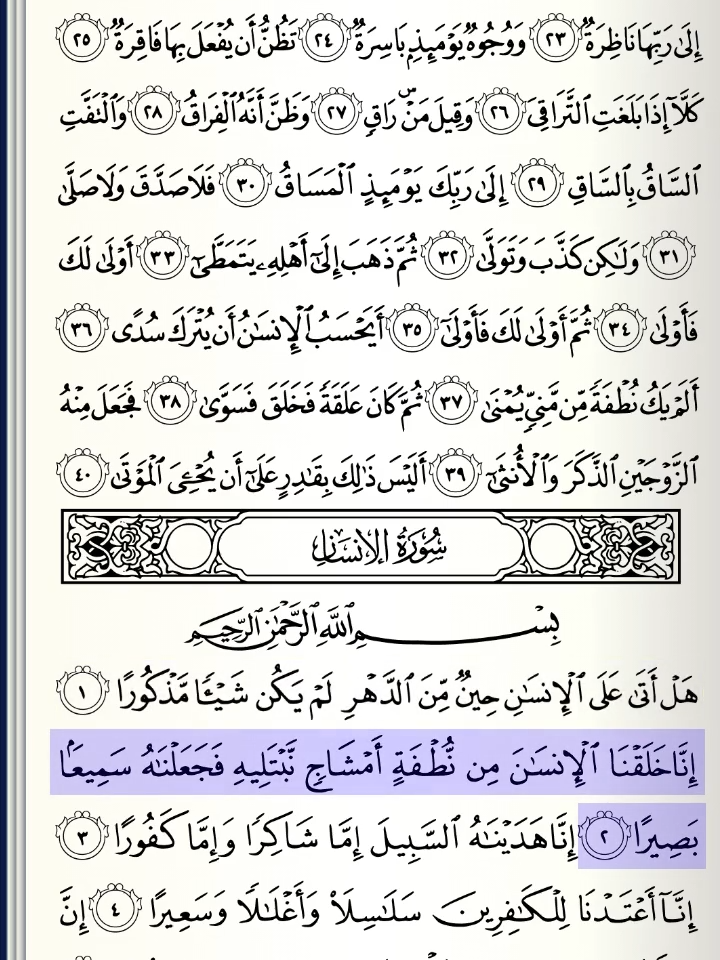 إِلَىٰ رَبِّهَا نَاظِرَةٌ ٢٣ وَوُجُوهٌ يَوْمَئِذٍۭ بَاسِرَةٌ ٢٤ تَظُنُّ أَن يُفْعَلَ بِهَا فَاقِرَةٌ ٢٥
كَلَّآ إِذَا بَلَغَتِ ٱلتَّرَاقِىَ ٢٦ وَقِيلَ مَنْۜ رَاقٍ ٢٧ وَظَنَّ أَنَّهُ ٱلْفِرَاقُ ٢٨ وَٱلْتَفَّتِ
ٱلسَّاقُ بِٱلسَّاقِ ٢٩ إِلَىٰ رَبِّكَ يَوْمَئِذٍ ٱلْمَسَاقُ ٣٠ فَلَا صَدَّقَ وَلَا صَلَّىٰ
٣١ وَلَٰكِن كَذَّبَ وَتَوَلَّىٰ ٣٢ ثُمَّ ذَهَبَ إِلَىٰٓ أَهْلِهِۦ يَتَمَطَّىٰٓ ٣٣ أَوْلَىٰ لَكَ
فَأَوْلَىٰ ٣٤ ثُمَّ أَوْلَىٰ لَكَ فَأَوْلَىٰٓ ٣٥ أَيَحْسَبُ ٱلْإِنسَٰنُ أَن يُتْرَكَ سُدًى ٣٦
أَلَمْ يَكُ نُطْفَةً مِّن مَّنِىٍّ يُمْنَىٰ ٣٧ ثُمَّ كَانَ عَلَقَةً فَخَلَقَ فَسَوَّىٰ ٣٨ فَجَعَلَ مِنْهُ
ٱلزَّوْجَيْنِ ٱلذَّكَرَ وَٱلْأُنثَىٰٓ ٣٩ أَلَيْسَ ذَٰلِكَ بِقَٰدِرٍ عَلَىٰٓ أَن يُحْـِۧىَ ٱلْمَوْتَىٰ ٤٠
سُورَةُ الإِنسَانِ
بِسْمِ ٱللَّهِ ٱلرَّحْمَٰنِ ٱلرَّحِيمِ
هَلْ أَتَىٰ عَلَى ٱلْإِنسَٰنِ حِينٌ مِّنَ ٱلدَّهْرِ لَمْ يَكُن شَيْـًٔا مَّذْكُورًا ١
إِنَّا خَلَقْنَا ٱلْإِنسَٰنَ مِن نُّطْفَةٍ أَمْشَاجٍ نَّبْتَلِيهِ فَجَعَلْنَٰهُ سَمِيعًۢا
بَصِيرًا ٢ إِنَّا هَدَيْنَٰهُ ٱلسَّبِيلَ إِمَّا شَاكِرًا وَإِمَّا كَفُورًا ٣
إِنَّآ أَعْتَدْنَا لِلْكَٰفِرِينَ سَلَٰسِلَا۟ وَأَغْلَٰلًا وَسَعِيرًا ٤ إِنَّ